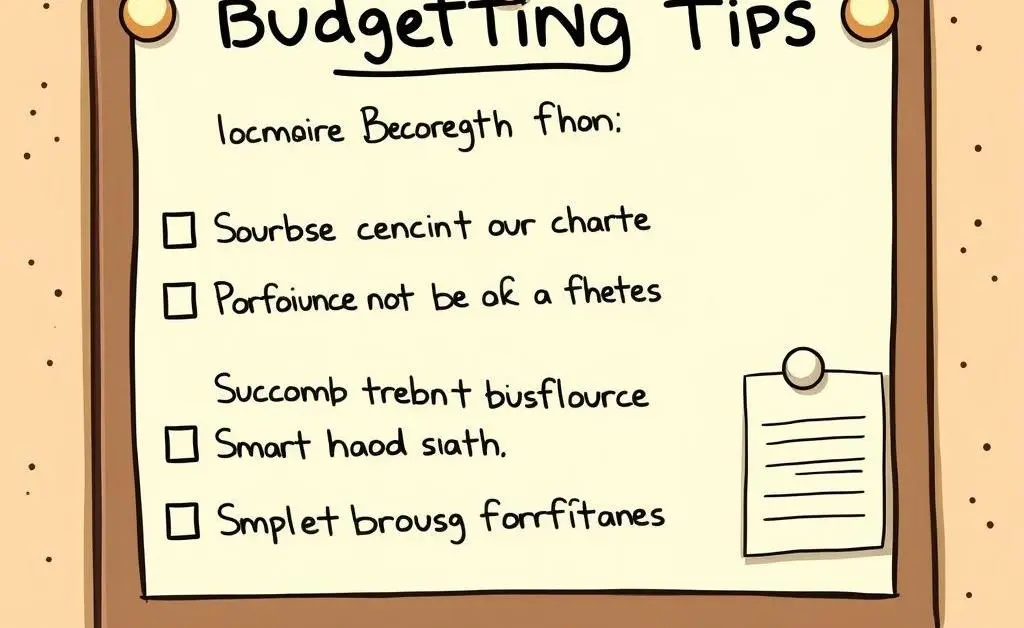 Budgetting Tips
locmaire Becoregth fhon:
Sourbse cencint our charte
Porfoiunce not be ok a fhetes
Succomb trebnt busflource
Smart haod siath.
Smplet brousg forrfitanes